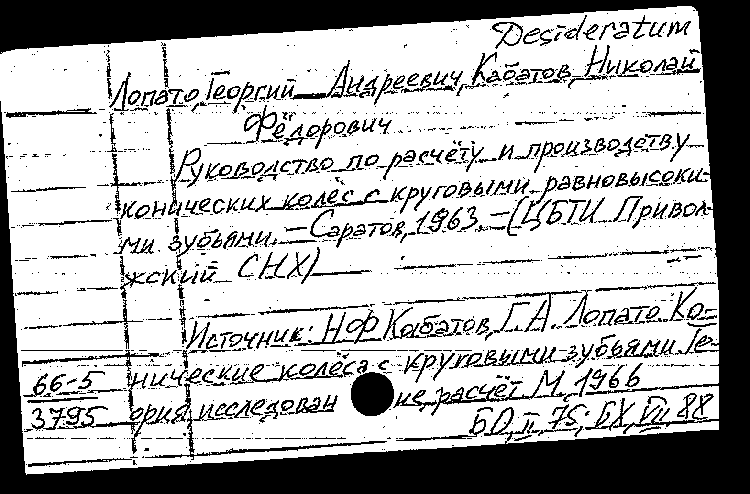 Desideratum
Лопато, Георгий Андреевич, Кабатов, Николай
Фёдорович
Руководство по расчёту и производству
конических колёс с круговыми равновысоки-
ми зубьями. – Саратов, 1963. – (ЦБТИ Привол-
жский СНХ)
Источник: НФ Кабатов, Г.А. Лопато. Ко-
нические колёса с круговыми зубьями. Те-
66-5
ория исследован не, расчёт. М., 1966
3795
БО, II, 75; БХ, VII, 88